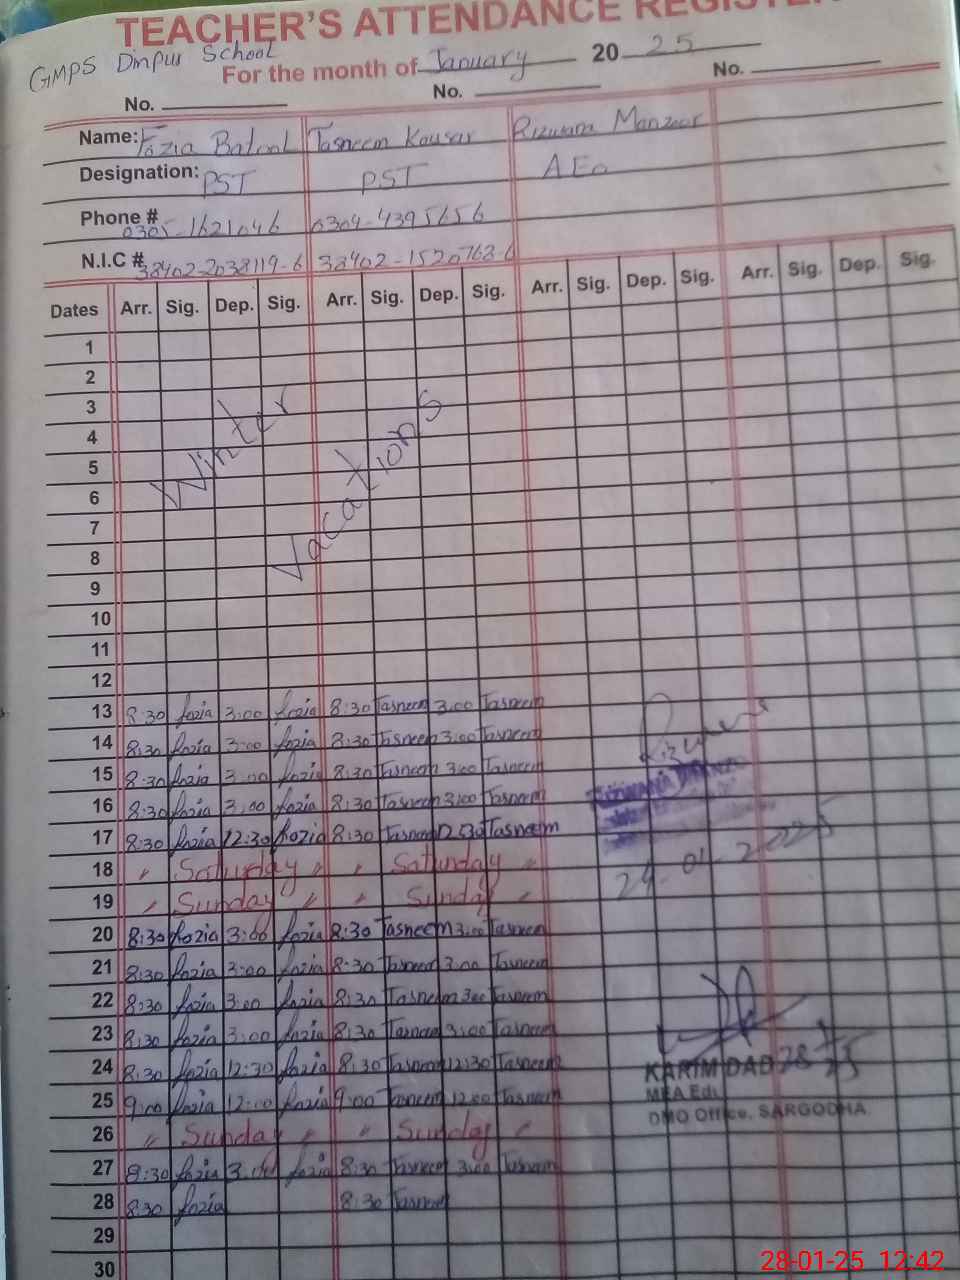 TEACHER'S ATTENDANCE REGISTER
GMPS Dinpur School
For the month of January 20 25
No. No. No.
Name: Fozia Batool Tasneem Kousar Rizwana Manzoor
Designation: PST PST AEO
Phone # 0305-1621046 0304-4395656
N.I.C # 38402-2038119-6 38402-1520768-6
Dates Arr. Sig. Dep. Sig. Arr. Sig. Dep. Sig. Arr. Sig. Dep. Sig. Arr. Sig. Dep. Sig.
1
2
3
4
5
6
7
8
9
10
11
12
Winter
Vacations
13 8:30 fozia 3:00 fozia 8:30 Tasneem 3:00 Tasneem
14 8:30 fozia 3:00 fozia 8:30 Tasneem 3:00 Tasneem
15 8:30 fozia 3:00 fozia 8:30 Tasneem 3:00 Tasneem
16 8:30 fozia 3:00 fozia 8:30 Tasneem 3:00 Tasneem
17 8:30 fozia 12:30 fozia 8:30 Tasneem 12:30 Tasneem
18 " Saturday " " Saturday "
19 " Sunday " " Sunday "
20 8:30 fozia 3:00 fozia 8:30 Tasneem 3:00 Tasneem
21 8:30 fozia 3:00 fozia 8:30 Tasneem 3:00 Tasneem
22 8:30 fozia 3:00 fozia 8:30 Tasneem 3:00 Tasneem
23 8:30 fozia 3:00 fozia 8:30 Tasneem 3:00 Tasneem
24 8:30 fozia 12:30 fozia 8:30 Tasneem 12:30 Tasneem
25 9:00 fozia 12:00 fozia 9:00 Tasneem 12:00 Tasneem
26 " Sunday " " Sunday "
27 8:30 fozia 3:00 fozia 8:30 Tasneem 3:00 Tasneem
28 8:30 fozia 8:30 Tasneem
29
30
RIZWANA
24-01-2025
KARIM DAD
MEA Edu
DMO Office, SARGODHA
28-01-25 12:42